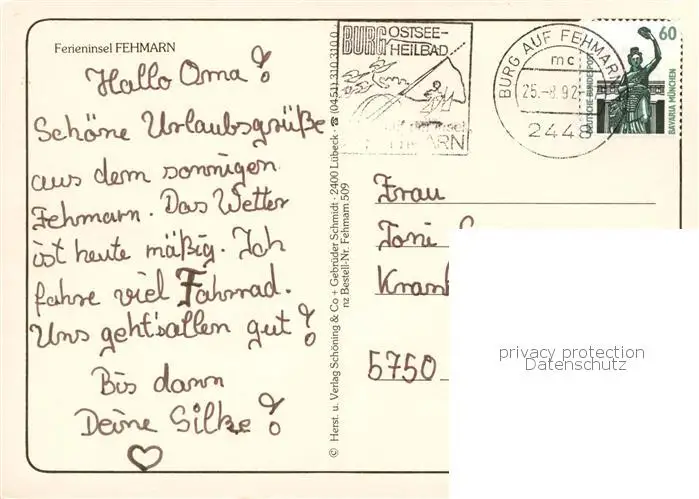 Ferieninsel FEHMARN
Hallo Oma!
Schöne Urlaubsgrüße
aus dem sonnigen
Fehmarn. Das Wetter
ist heute mäßig. Ich
fahre viel Fahrrad.
Uns geht's allen gut!
Bis dann
Deine Silke!
© Herst. u. Verlag Schöning & Co + Gebrüder Schmidt · 2400 Lübeck · ☎ (0451) 310 310 0
nz Bestell-Nr. Fehmarn 509
BURG OSTSEE-
HEILBAD
BURG AUF FEHMARN
mc
25.-8.92
2448
60
DEUTSCHE BUNDESPOST
BAVARIA MÜNCHEN
Frau
Toni
Krank
5750
privacy protection
Datenschutz